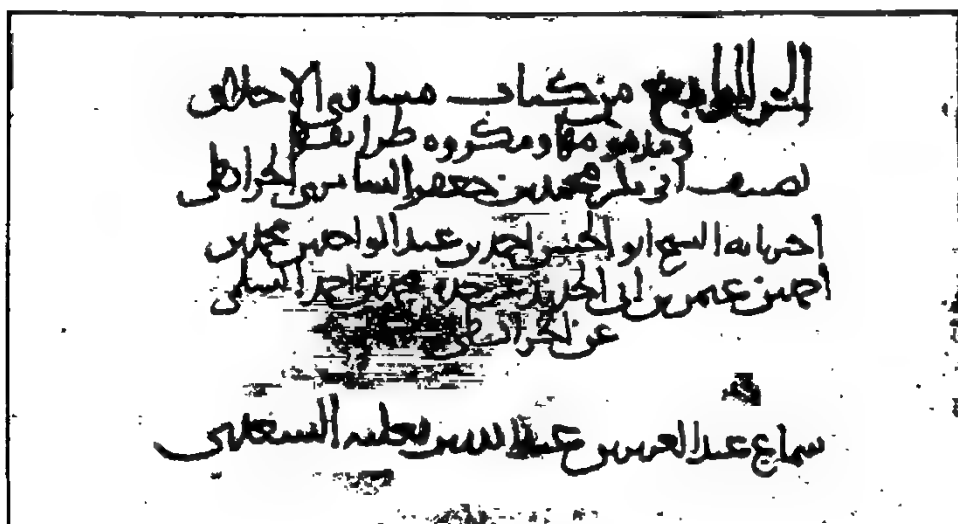 الجزء الرابع من كتاب مساوئ الاخلاق
ومذمومها ومكروه طرائقها
تصنيف ابي بكر محمد بن جعفر السامري الخرائطي
اخبرنا به الشيخ ابو الحسن احمد بن عبد الواحد بن محمد بن
احمد بن عثمن بن ابي الحديد عن جده محمد بن احمد السلمي
عن الخرائطي
سماع عبد العزيز بن عبد الله بن ثعلبة السعدي